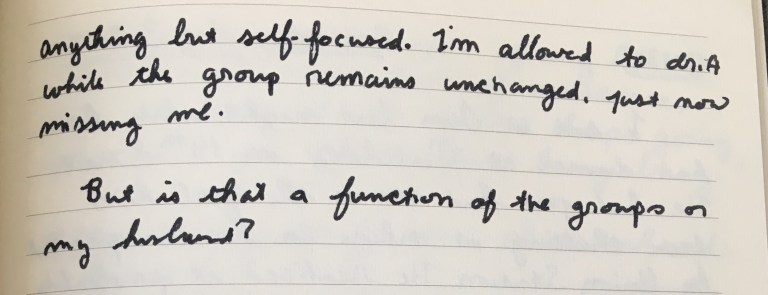 anything but self-focused. I'm allowed to drift
while the group remains unchanged, just now
missing me.
But is that a function of the groups or
my husband?